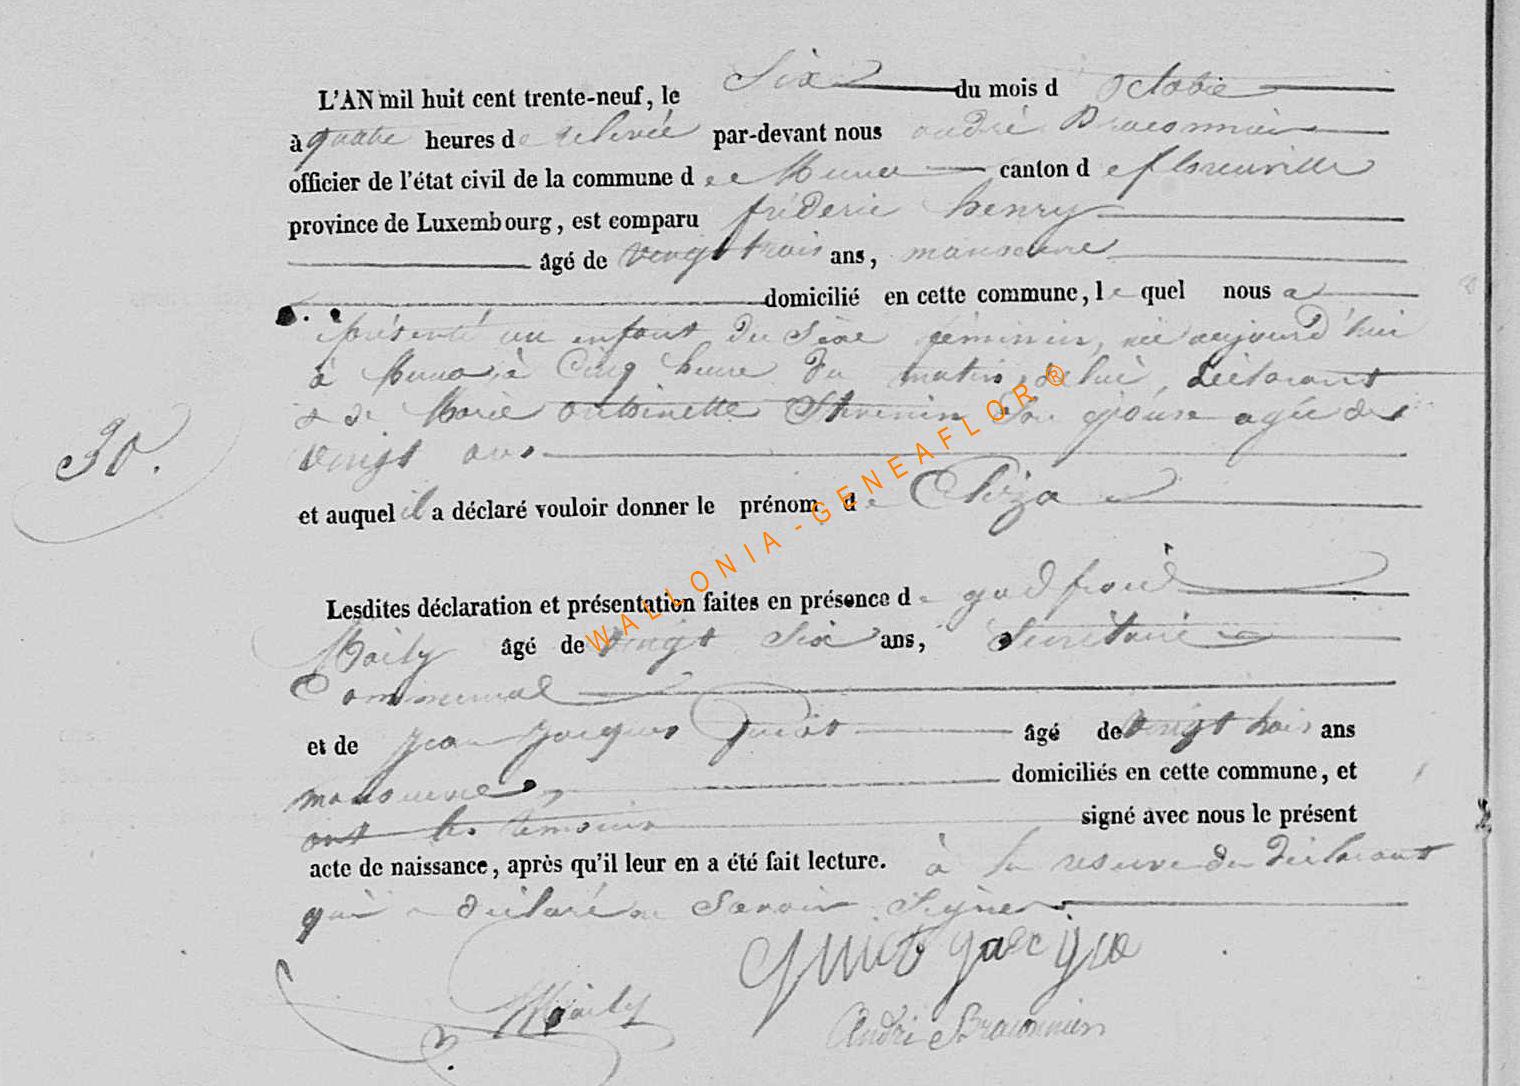 L'AN mil huit cent trente-neuf, le Six du mois d octobre
à quatre heures de relevée par-devant nous andré Braconnier
officier de l'état civil de la commune d e Muno canton d e florenville
province de Luxembourg, est comparu fréderic henry
âgé de vingt trois ans, manoeuvre
domicilié en cette commune, le quel nous a
présenté un enfant du sexe féminin, née aujourd'hui
à Muno, à Cinq heure du matin, de lui, déclarant
& de Marie antoinette Thevenin Son épouse agée de
vingt ans
30.
et auquel il a déclaré vouloir donner le prénom d e Eliza
Lesdites déclaration et présentation faites en présence d e godfroid
Maily âgé de vingt six ans, Secrétaire
Communal
et de jean jacques Guiot âgé de vingt trois ans
manoeuvre, domiciliés en cette commune, et
ont les témoins signé avec nous le présent
acte de naissance, après qu'il leur en a été fait lecture. à la reserve du déclarant
qui a déclaré ne Savoir Signer.
Guiot jacque
Maily
André Braconnier
WALLONIA-GENEAFLOR®